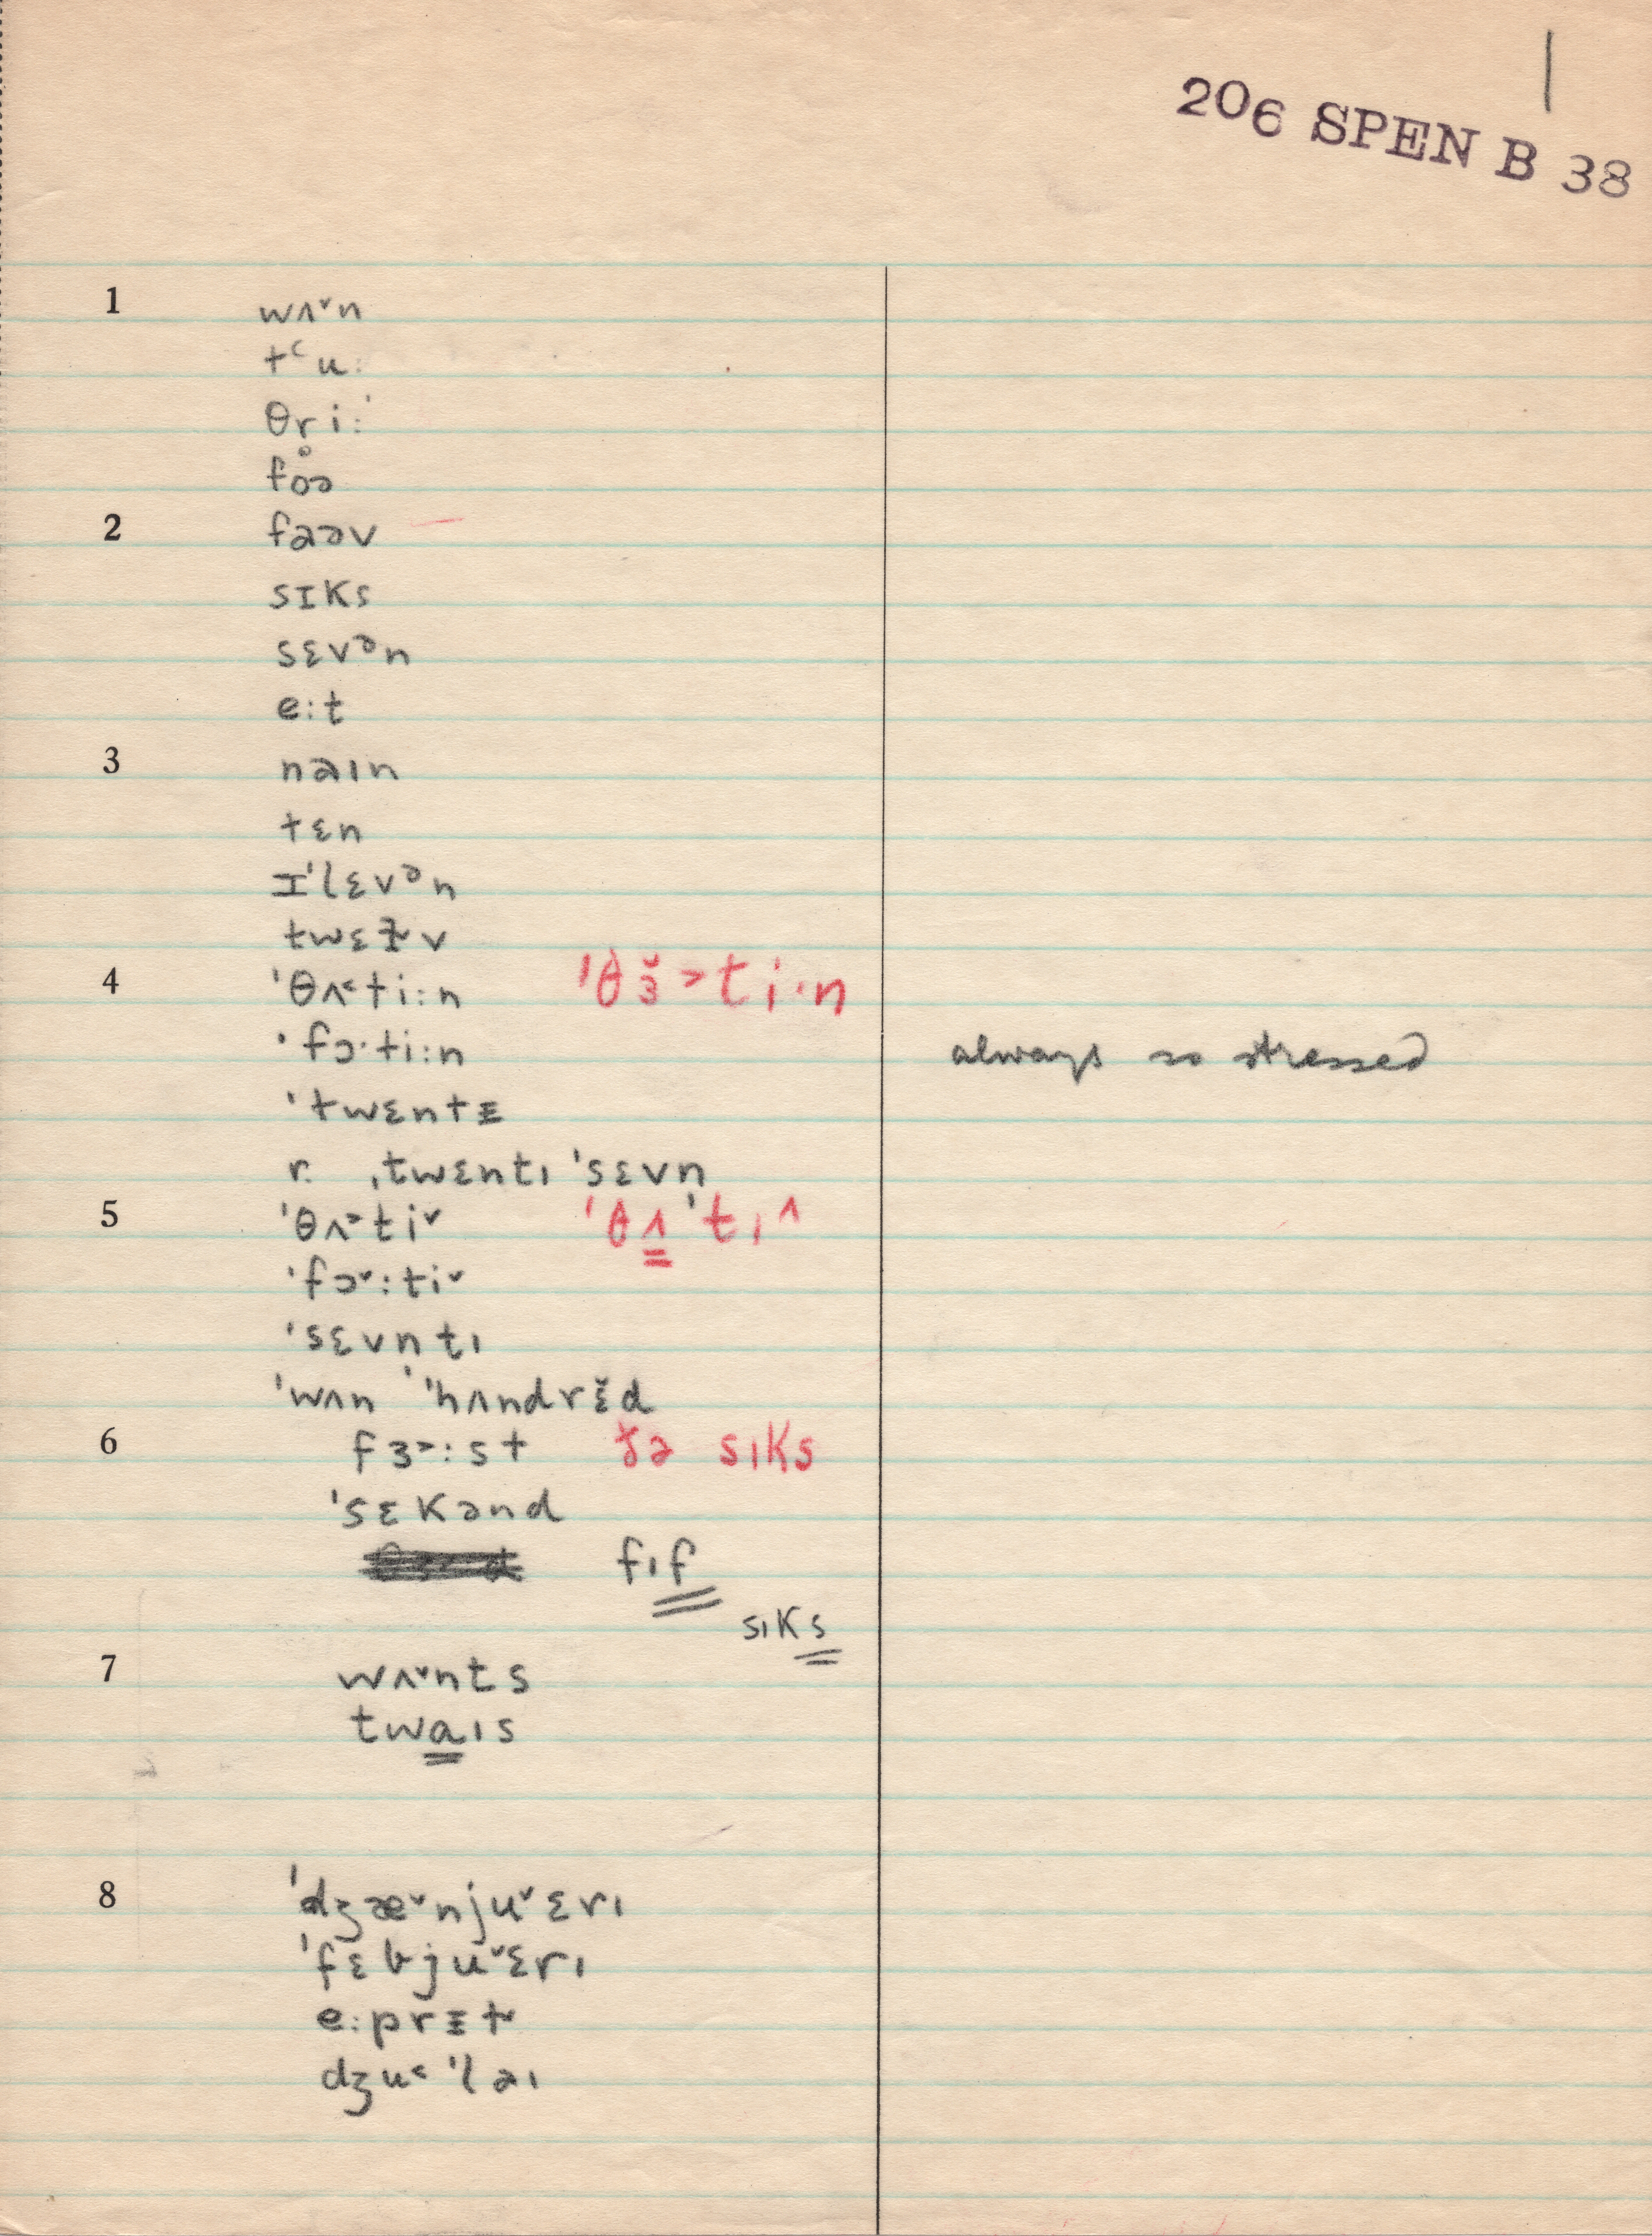 1
206 SPEN B 38
1 wʌ˅n
tʻu:
θr̥i:ˈ
foə
2 faəv
sɪks
sɛvᵊn
e:t
3 naɪn
tɛn
ɪˈlɛvᵊn
twɛɫv
4 ˈθʌ˂ti:n ˈθɜ̆˃ti·n
ˈfɔ·ti:n always so stressed
ˈtwɛntɪ
r. ˌtwɛntɪ ˈsɛvn
5 ˈθʌ˃ti˅ ˈθʌˈtɪ^
ˈfɔ˅:ti˅
ˈsɛvntɪ
ˈwʌn ˈˈhʌndrɛ̆d
6 fɜ˃:st ðə sɪks
ˈsɛkənd
fɪf
sɪks
7 wʌ˅nts
twaɪs
8 ˈdʒæ˅nju˅ɛrɪ
ˈfɛbju˅ɛrɪ
e:prɪɫ
dʒu˂ˈlaɪ